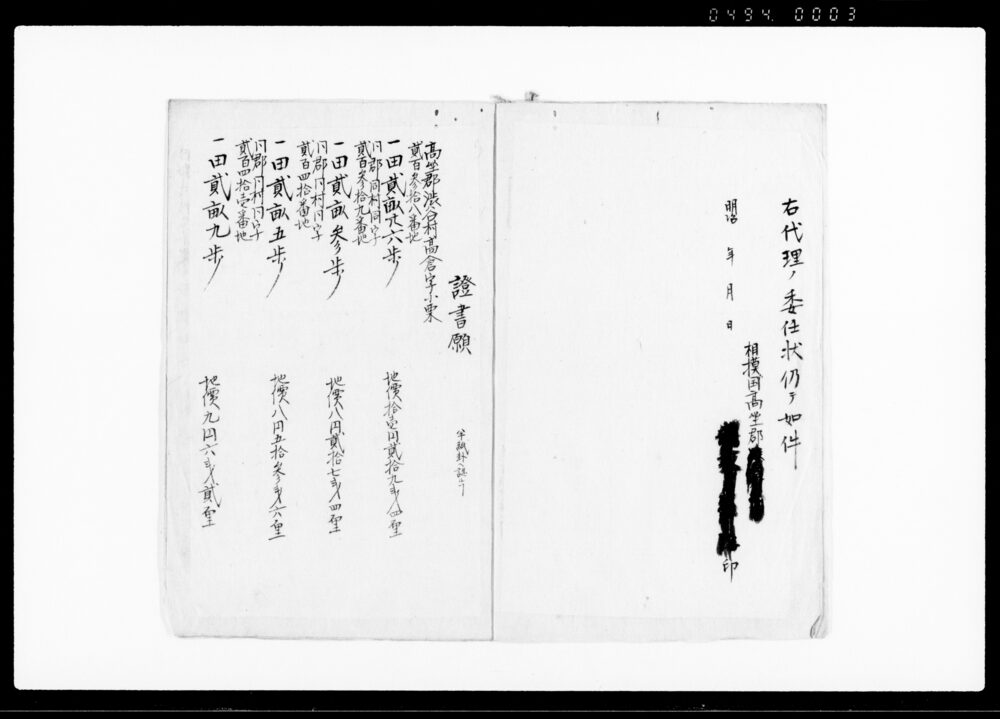 0494 0003
右代理ノ委任状仍テ如件
明治 年 月 日
相摸国高坐郡
印
證書願
高坐郡渋谷村高倉字小東
貳百参拾八番地
一田貳畝六歩 地價拾壱円貳拾九銭四厘
同郡同村同字
貳百参拾九番地
一田貳畝参歩 地價八円貳拾七銭四厘
同郡同村同字
貳百四拾番地
一田貳畝五歩 地價八円五拾参銭六厘
同郡同村同字
貳百四拾壱番地
一田貳畝九歩 地價九円六銭貳厘